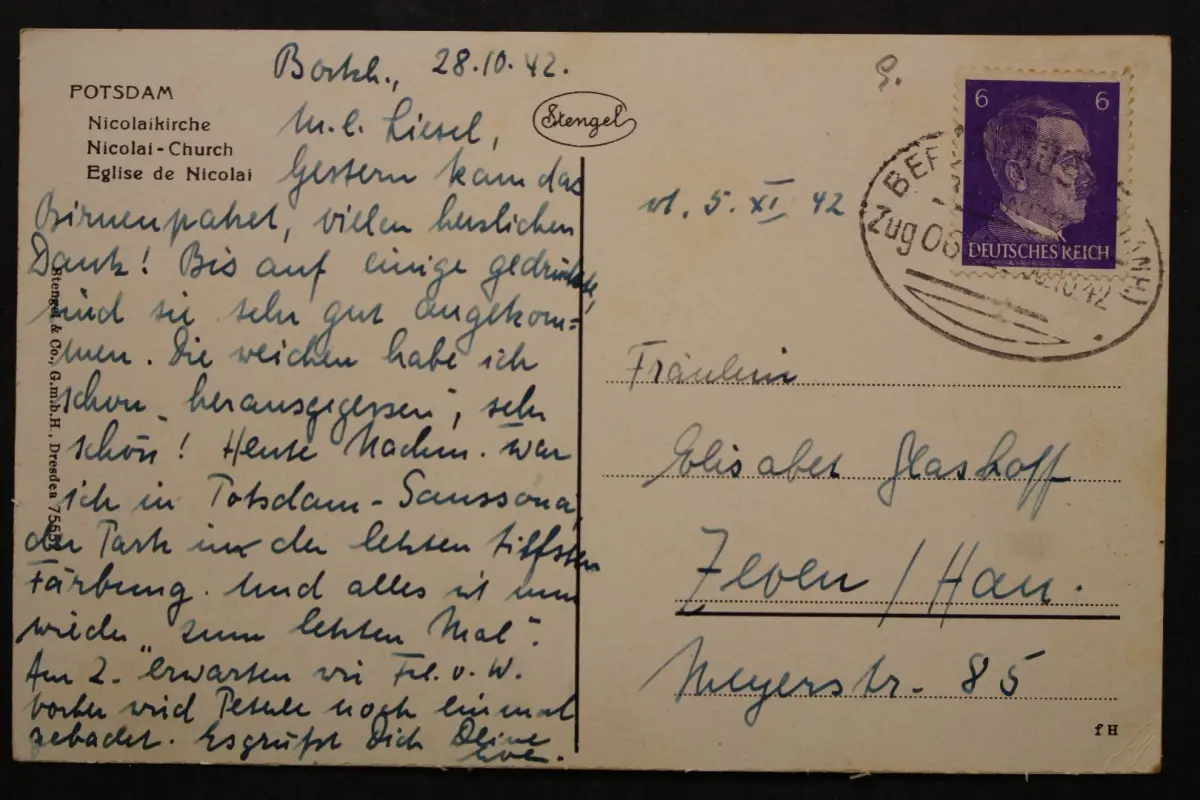 POTSDAM
Nicolaikirche
Nicolai - Church
Eglise de Nicolai
Stengel & Co., G.m.b.H., Dresden
Stengel
28.10.42.
M. l. Liesel,
Gestern kam das
Birnenpaket, vielen herzlichen
Dank! Bis auf einige gedrückte,
sind sie sehr gut angekom=
men. Die weichen habe ich
schon „herausgegessen", sehr
schön! Heute Nachm. war
ich in Potsdam-Sanssouci,
der Park in den letzten tiefsten
Färbung. Und alles ist nun
wieder „zum letzten Mal".
Am 2. erwarten wir Frl. v. W.
vorher wird noch einmal
gebadet. Es grüßt Dich Deine
5. XI 42
6 6
DEUTSCHES REICH
Zug
10.42
Fräulein
Elisabet Glashoff
Zeven / Han.
Meyerstr. 85
f H